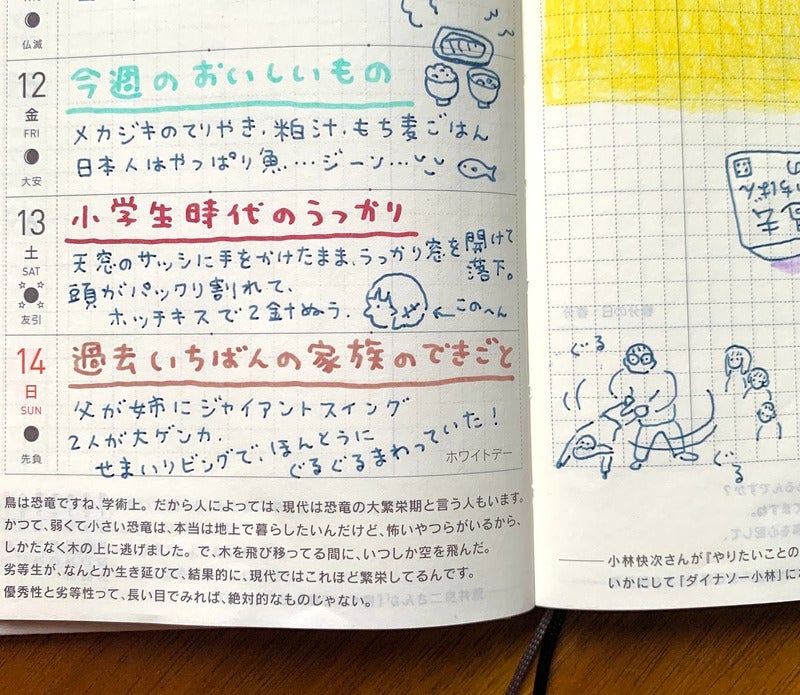 仏滅
12
金
FRI
大安
今週のおいしいもの
メカジキのてりやき、粕汁、もち麦ごはん
日本人はやっぱり魚…ジーン…
13
土
SAT
友引
小学生時代のうっかり
天窓のサッシに手をかけたまま、うっかり窓を開けて
落下。
頭がパックリ割れて、
ホッチキスで2針ぬう。
←このへん
14
日
SUN
先負
過去いちばんの家族のできごと
父が姉にジャイアントスイング
2人が大ゲンカ.
せまいリビングで、ほんとうに
ぐるぐるまわっていた!
ホワイトデー
鳥は恐竜ですね、学術上。だから人によっては、現代は恐竜の大繁栄期と言う人もいます。
かつて、弱くて小さい恐竜は、本当は地上で暮らしたいんだけど、怖いやつらがいるから、
しかたなく木の上に逃げました。で、木を飛び移ってる間に、いつしか空を飛んだ。
劣等生が、なんとか生き延びて、結果的に、現代ではこれほど繁栄してるんです。
優秀性と劣等性って、長い目でみれば、絶対的なものじゃない。
過去
いちばん
の
ぐる
ぐる
——小林快次さんが『やりたいことの
いかにして「ダイナソー小林」に